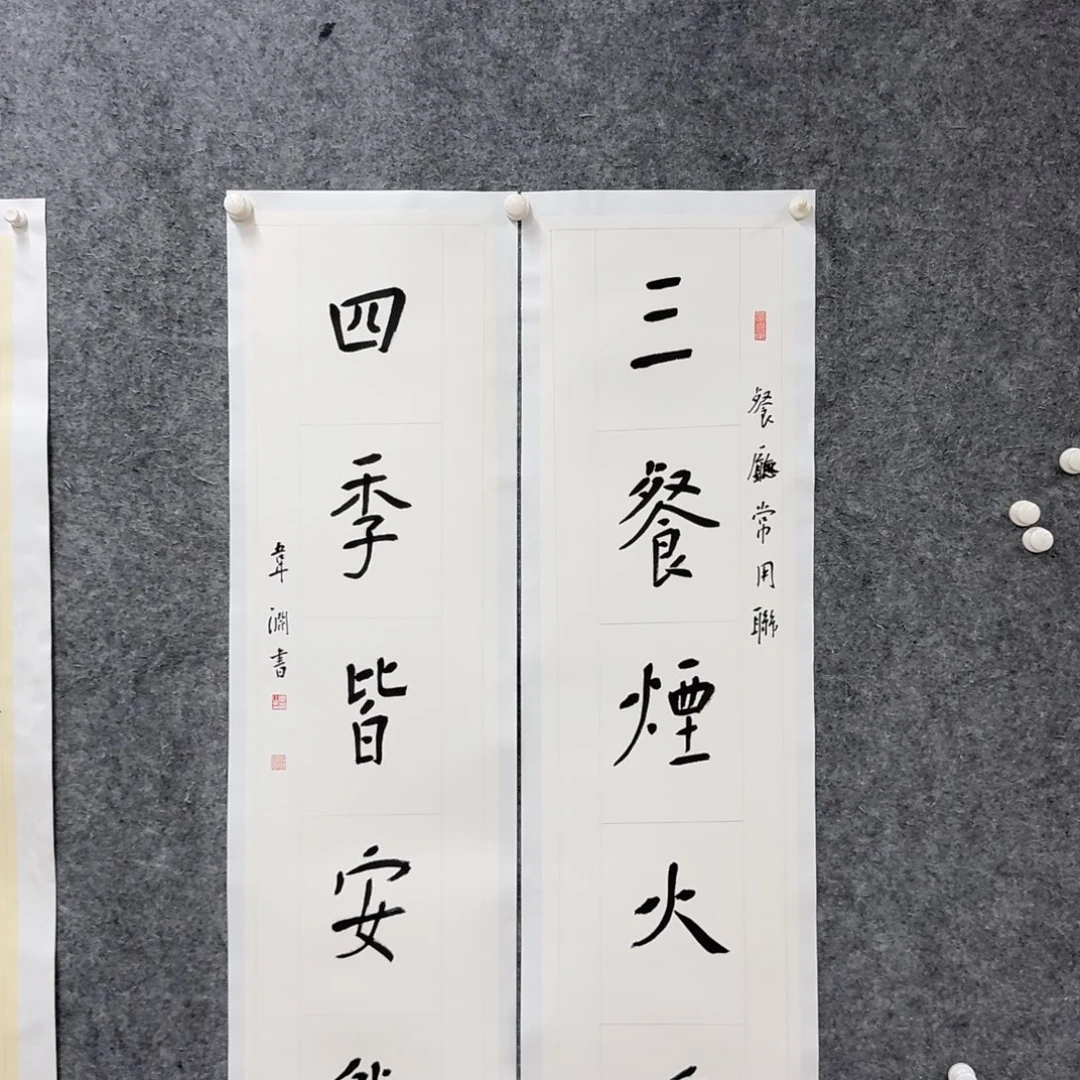 餐廳常用聯
三餐煙火
四季皆安
韋淵書